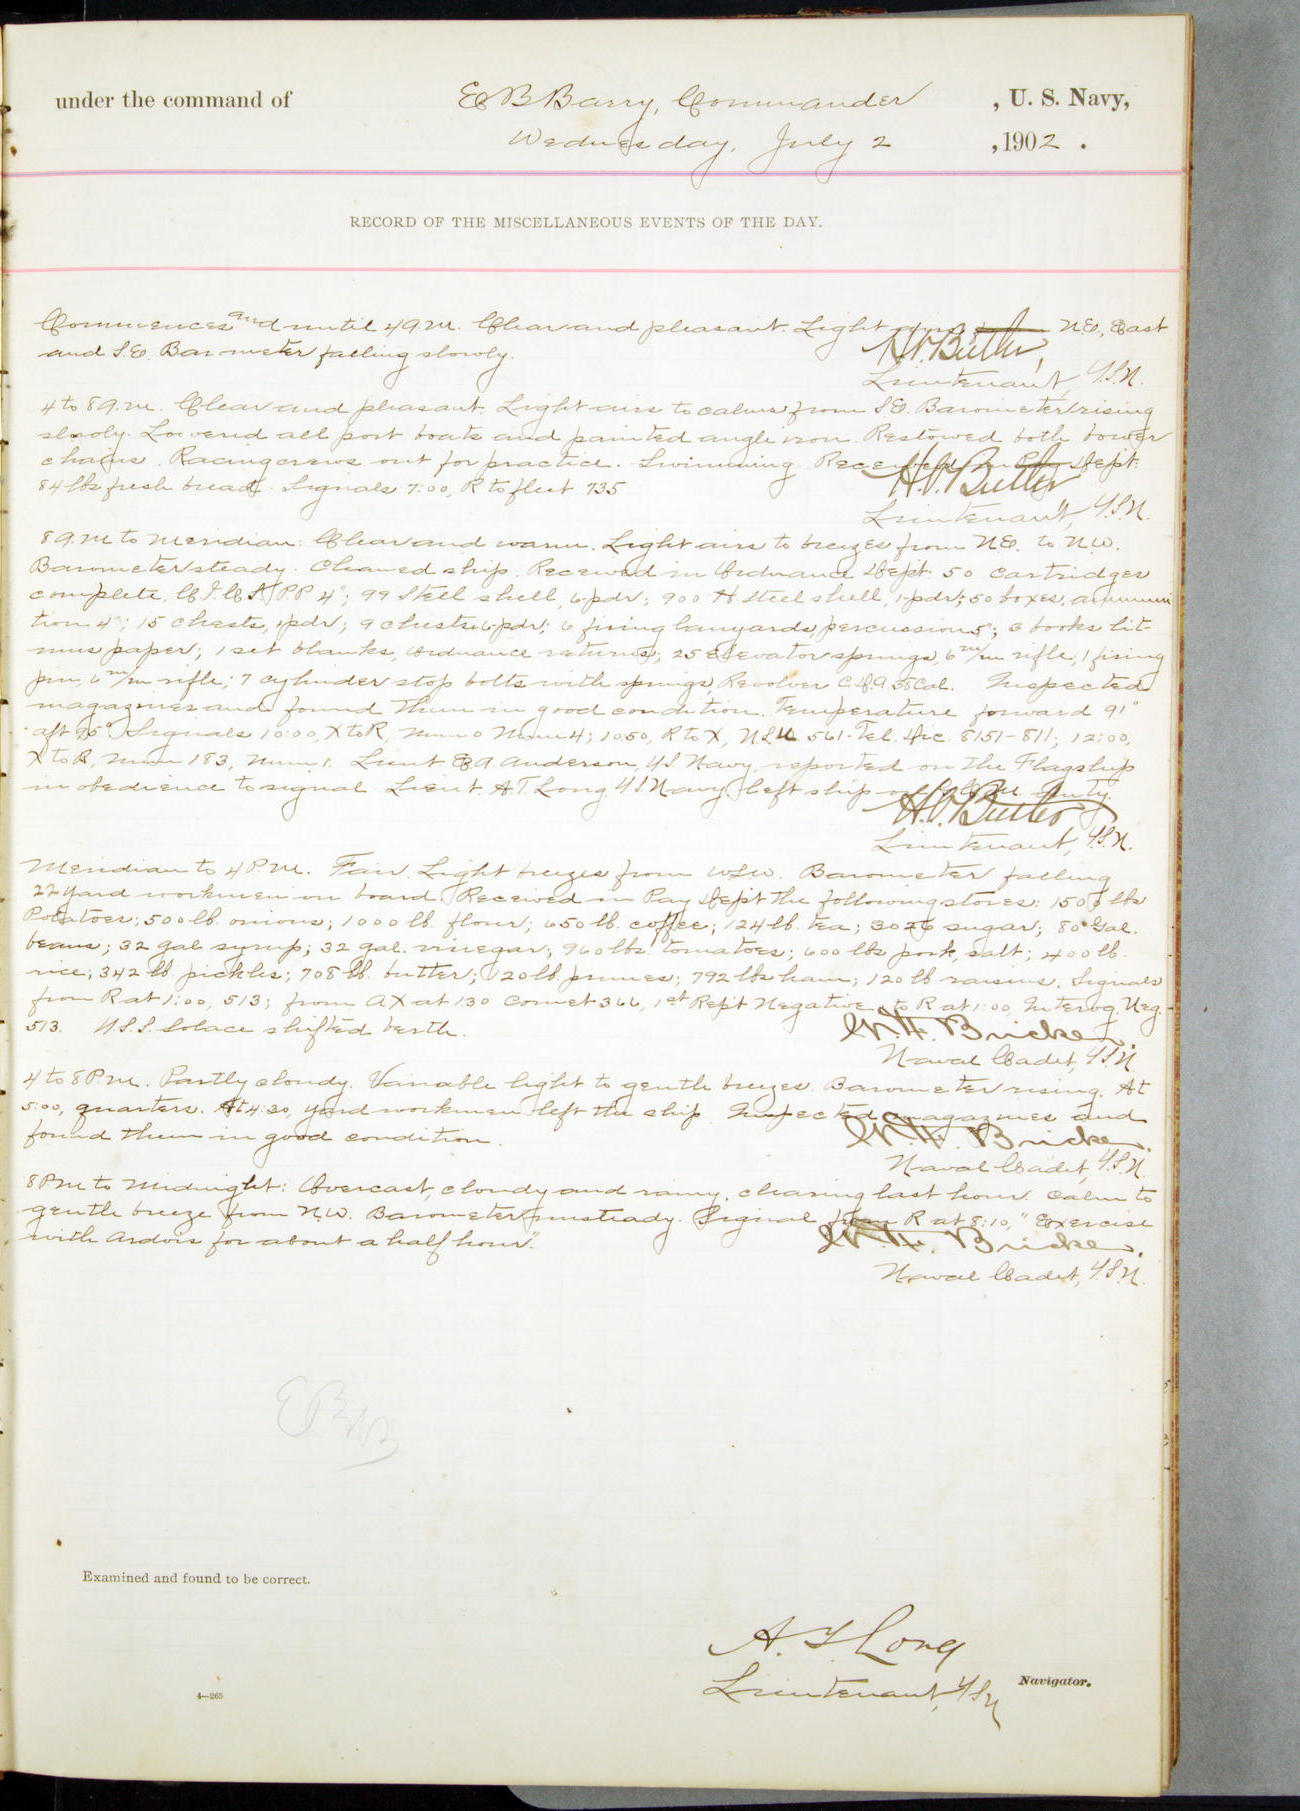 under the command of E B Barry, Commander , U. S. Navy,
Wednesday, July 2 , 1902 .
RECORD OF THE MISCELLANEOUS EVENTS OF THE DAY.
Commences and until 4 A.M. Clear and pleasant. Light N.E., East
and S.E. Barometer falling slowly.
H.V. Butler,
Lieutenant, U.S.N.
4 to 8 A.M. Clear and pleasant. Light airs to calms from S.E. Barometer rising
slowly. Lowered all port boats and painted angle iron. Restowed both bower
chains. Racing crews out for practice. Swimming. Received in Pay Dept.
84 lbs fresh bread. Signals 7:00, R to fleet 735
H.V. Butler
Lieutenant, U.S.N.
8 A.M to Meridian: Clear and warm. Light airs to breezes from N.E. to N.W.
Barometer steady. Cleaned ship. Received in Ordnance Dept. 50 cartridges
complete, 4"; 99 Steel shell, 6-pdr; 900 steel shell, 1-pdr; 50 boxes, ammuni
tion 4"; 15 chests, 1pdr; 9 chests 6-pdr; 6 firing lanyards, percussion 5"; 3 books lit-
mus paper; 1 set blanks, ordnance returns; 25 elevator springs, 6 m/m rifle; 1 firing
pin, 6 m/m rifle; 7 cylinder stop bolts with springs, Revolver Cal. Inspected
magazines and found them in good condition. Temperature forward 91°
aft 95°. Signals 10:00, X to R, Numo Num 4; 10:50, R to X, 561-Tel. Dic. 8151-811; 12:00,
X to R, Num 183, Num 1. Lieut E.A. Anderson, U.S Navy, reported on the Flagship
in obedience to signal. Lieut. A T Long U.S Navy left ship on duty.
H.V. Butler
Lieutenant, U.S.N.
Meridian to 4 P.M. Fair. Light breezes from WSW. Barometer falling
22 yard workmen on board. Received in Pay Dept the following stores: 1500 lbs
Potatoes; 500 lb. onions; 1000 lb. flour; 650 lb. coffee; 124 lb. tea; 3026 sugar; 80 Gal.
beans; 32 gal. syrup; 32 gal. vinegar; 960 lbs. tomatoes; 600 lbs pork, salt; 400 lb.
rice; 342 lb. pickles; 708 lb. butter; 120 lb. prunes; 792 lbs ham; 120 lb. raisins. Signals
from R at 1:00, 513; from AX at 1:30 Cornet 366, 1st Rept Negative, to R at 1:00, Interog. Neg.
513. U.S.S. Solace shifted berth.
W.H. Bricker.
Naval Cadet, U.S.N.
4 to 8 P.M. Partly cloudy. Variable light to gentle breezes. Barometer rising. At
5:00, quarters. At 4:30, yard workmen left the ship. Inspected magazines and
found them in good condition.
W.H. Bricker.
Naval Cadet, U.S.N.
8 PM to Midnight: Overcast, cloudy and rainy, clearing last hour. Calm to
gentle breeze from N.W. Barometer unsteady. Signal from R at 8:10, "Exercise
with Ardois for about a half hour".
W.H. Bricker.
Naval Cadet, U.S.N.
EBB
Examined and found to be correct.
A. T. Long
Lieutenant, U.S.N Navigator.
4—265